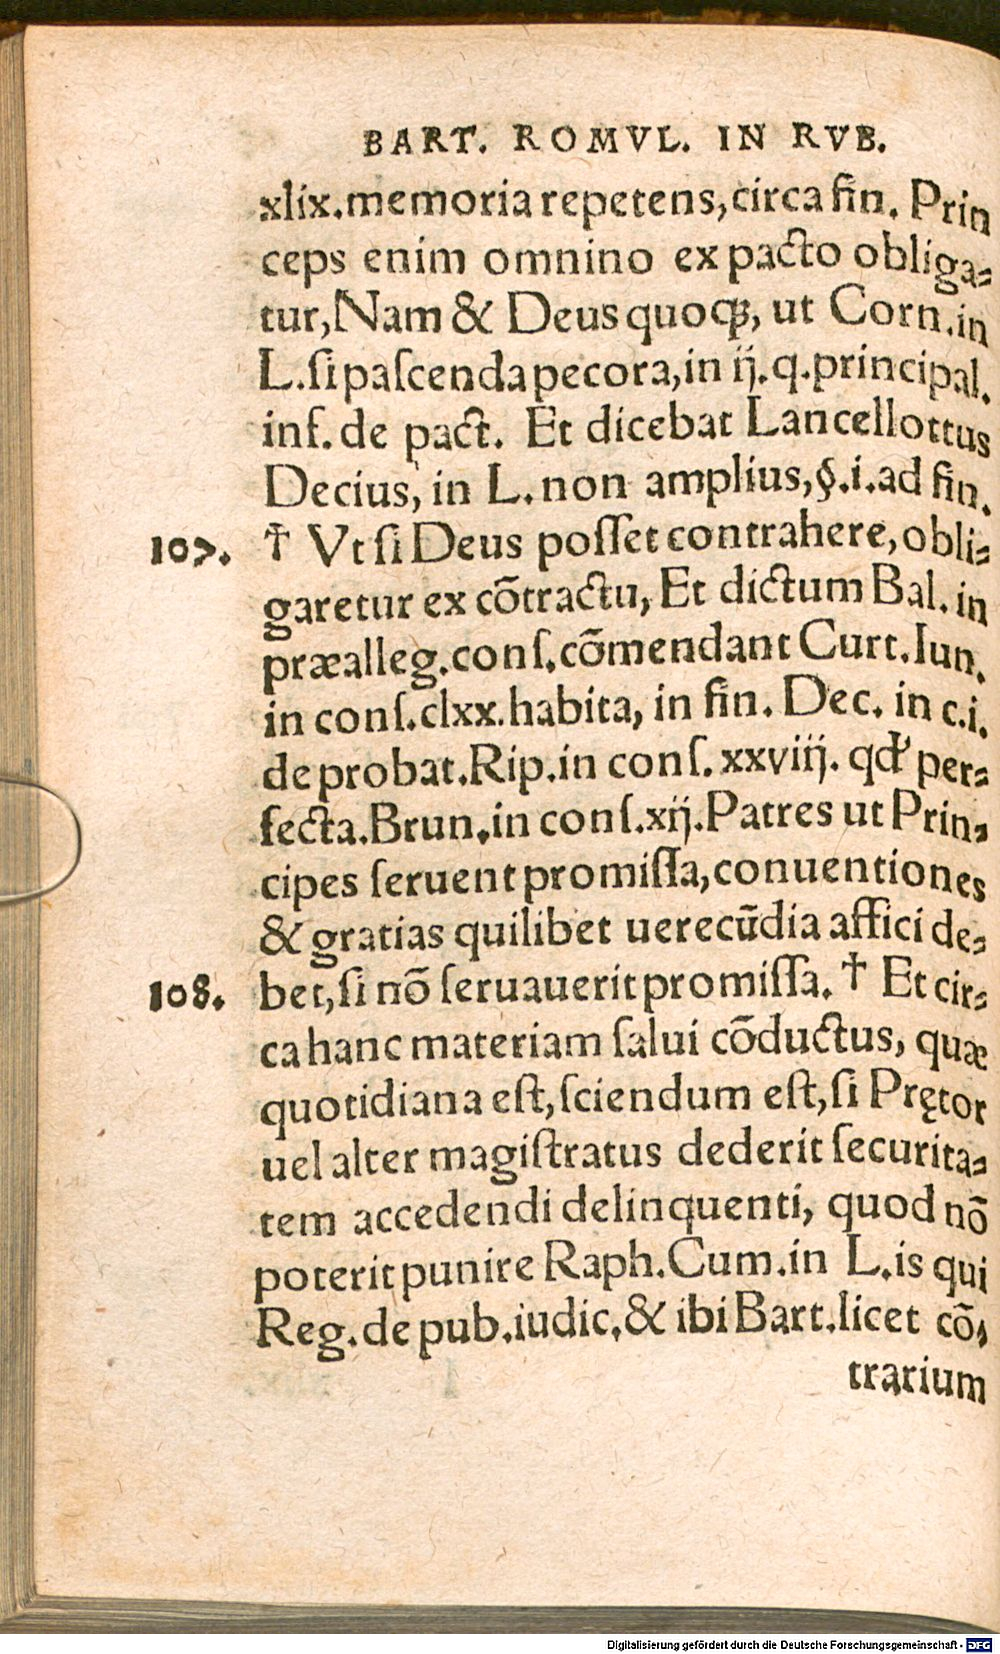 BART. ROMVL. IN RVB.
xlix.memoria repetens,circa fin. Prin
ceps enim omnino ex pacto obliga-
tur,Nam & Deus quoqꝫ, ut Corn.in
L.ſi paſcenda pecora,in ij.q.principal.
inf.de pact. Et dicebat Lancellottus
Decius, in L.non amplius,§.i.ad fin.
107. † Vt ſi Deus poſſet contrahere,obli-
garetur ex cõtractu, Et dictum Bal.in
præalleg.conſ.cõmendant Curt.Iun.
in conſ.clxx.habita, in fin. Dec. in c.i.
de probat.Rip.in conſ.xxviij. qd' per-
fecta.Brun.in conſ.xij.Patres ut Prin-
cipes ſeruent promiſſa,conuentiones
& gratias quilibet uerecũdia affici de-
108. bet,ſi nõ ſeruauerit promiſſa. † Et cir-
ca hanc materiam ſalui cõductus, quæ
quotidiana eſt,ſciendum eſt,ſi Prętor
uel alter magiſtratus dederit ſecurita-
tem accedendi delinquenti, quod nõ
poterit punire Raph.Cum.in L.is qui
Reg.de pub.iudic,& ibi Bart.licet cõ-
trarium
Digitalisierung gefördert durch die Deutsche Forschungsgemeinschaft - DFG